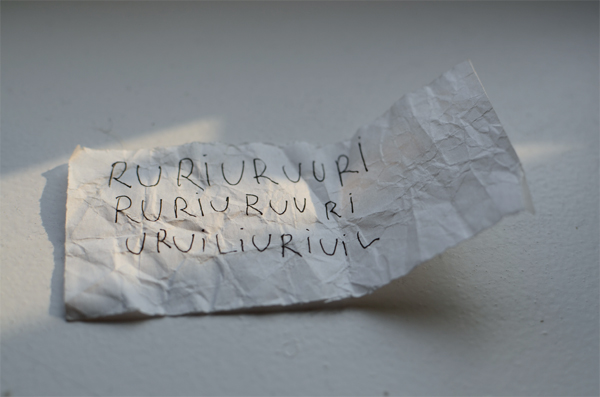 RURIURUURI
RURIU RUURI
URUILIURIUIL